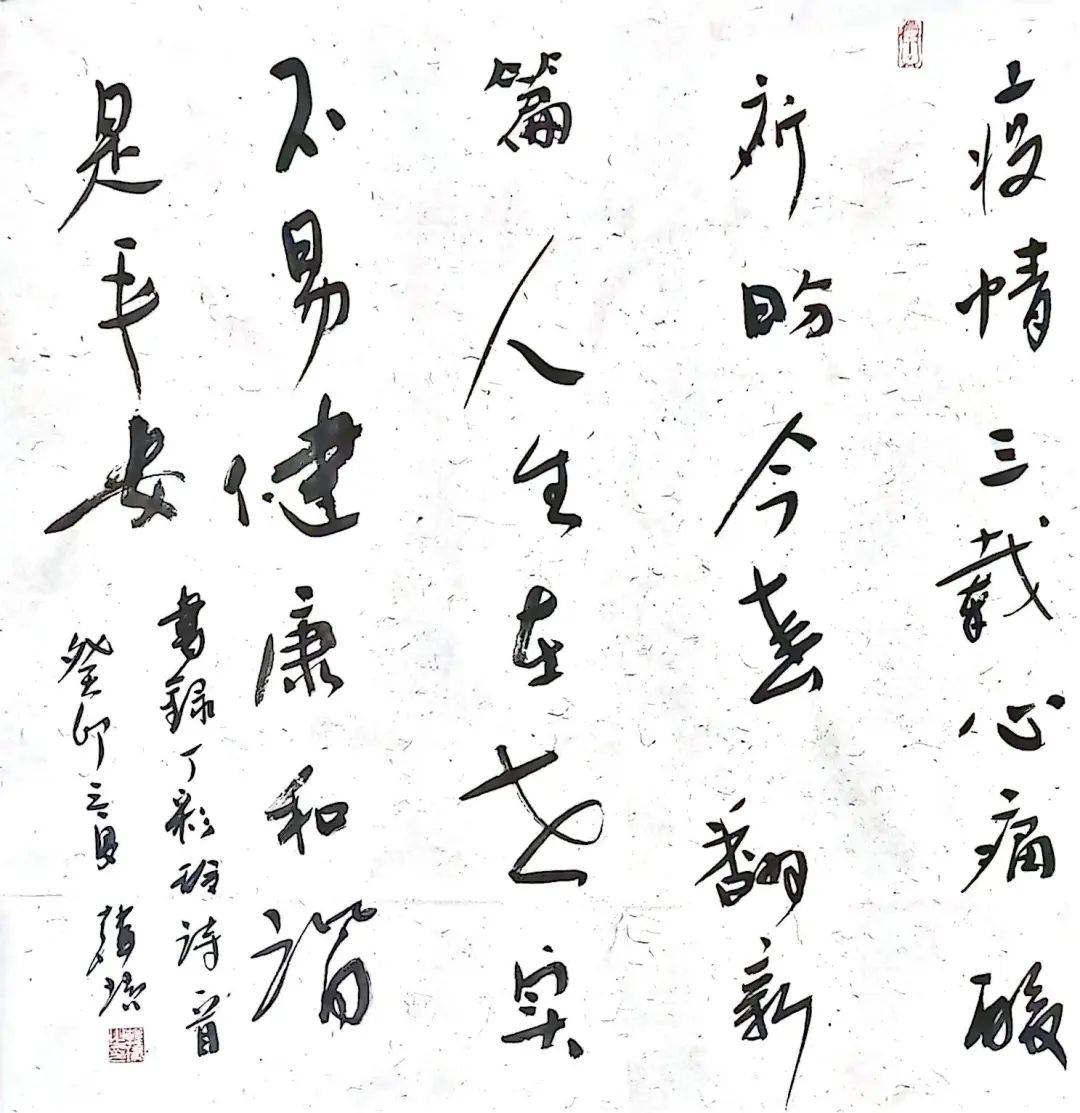 疫情三载心痛酸
祈盼今春翻新
篇人生在世实
不易健康和谐
是平安
书録丁彩诗一首
癸卯三月